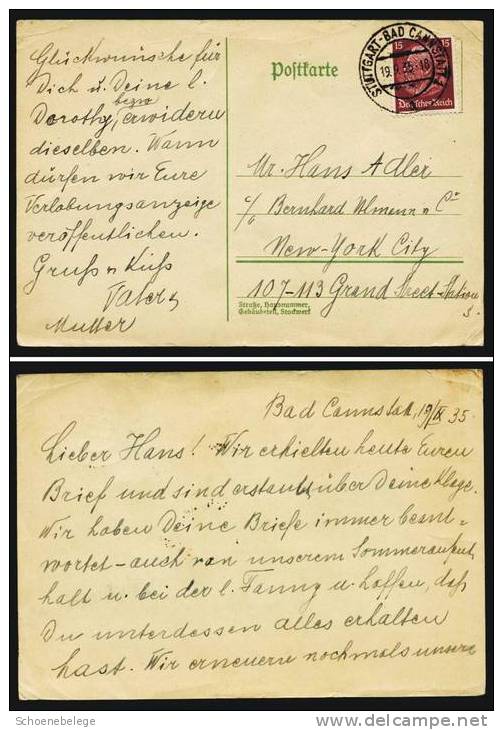 Glückwünsche für
Dich u. Deine l.
bezw
Dorothy, erwidern
dieselben. Wann
dürfen wir Eure
Verlobungsanzeige
veröffentlichen.
Gruß u Kuß
Vater u
Mutter
Postkarte
STUTTGART-BAD CANNSTATT 2
19.9.35.-18
15 15
Deutsches Reich
Mr. Hans Adler
c/o Bernhard Ulmann u Co
New-York City
107-113 Grand Street-Station
3.
Straße, Hausnummer,
Gebäudeteil, Stockwerk
Bad Cannstatt, 19/IX 35
Lieber Hans! Wir erhielten heute Euren
Brief und sind erstaunt über Deine Klage.
Wir haben Deine Briefe immer beant=
wortet - auch von unserem Sommeraufent
halt u. bei der l. Fanny u. hoffen, daß
Du unterdessen alles erhalten
hast. Wir erneuern nochmals unsere
Schoenebelege
delcampe.net